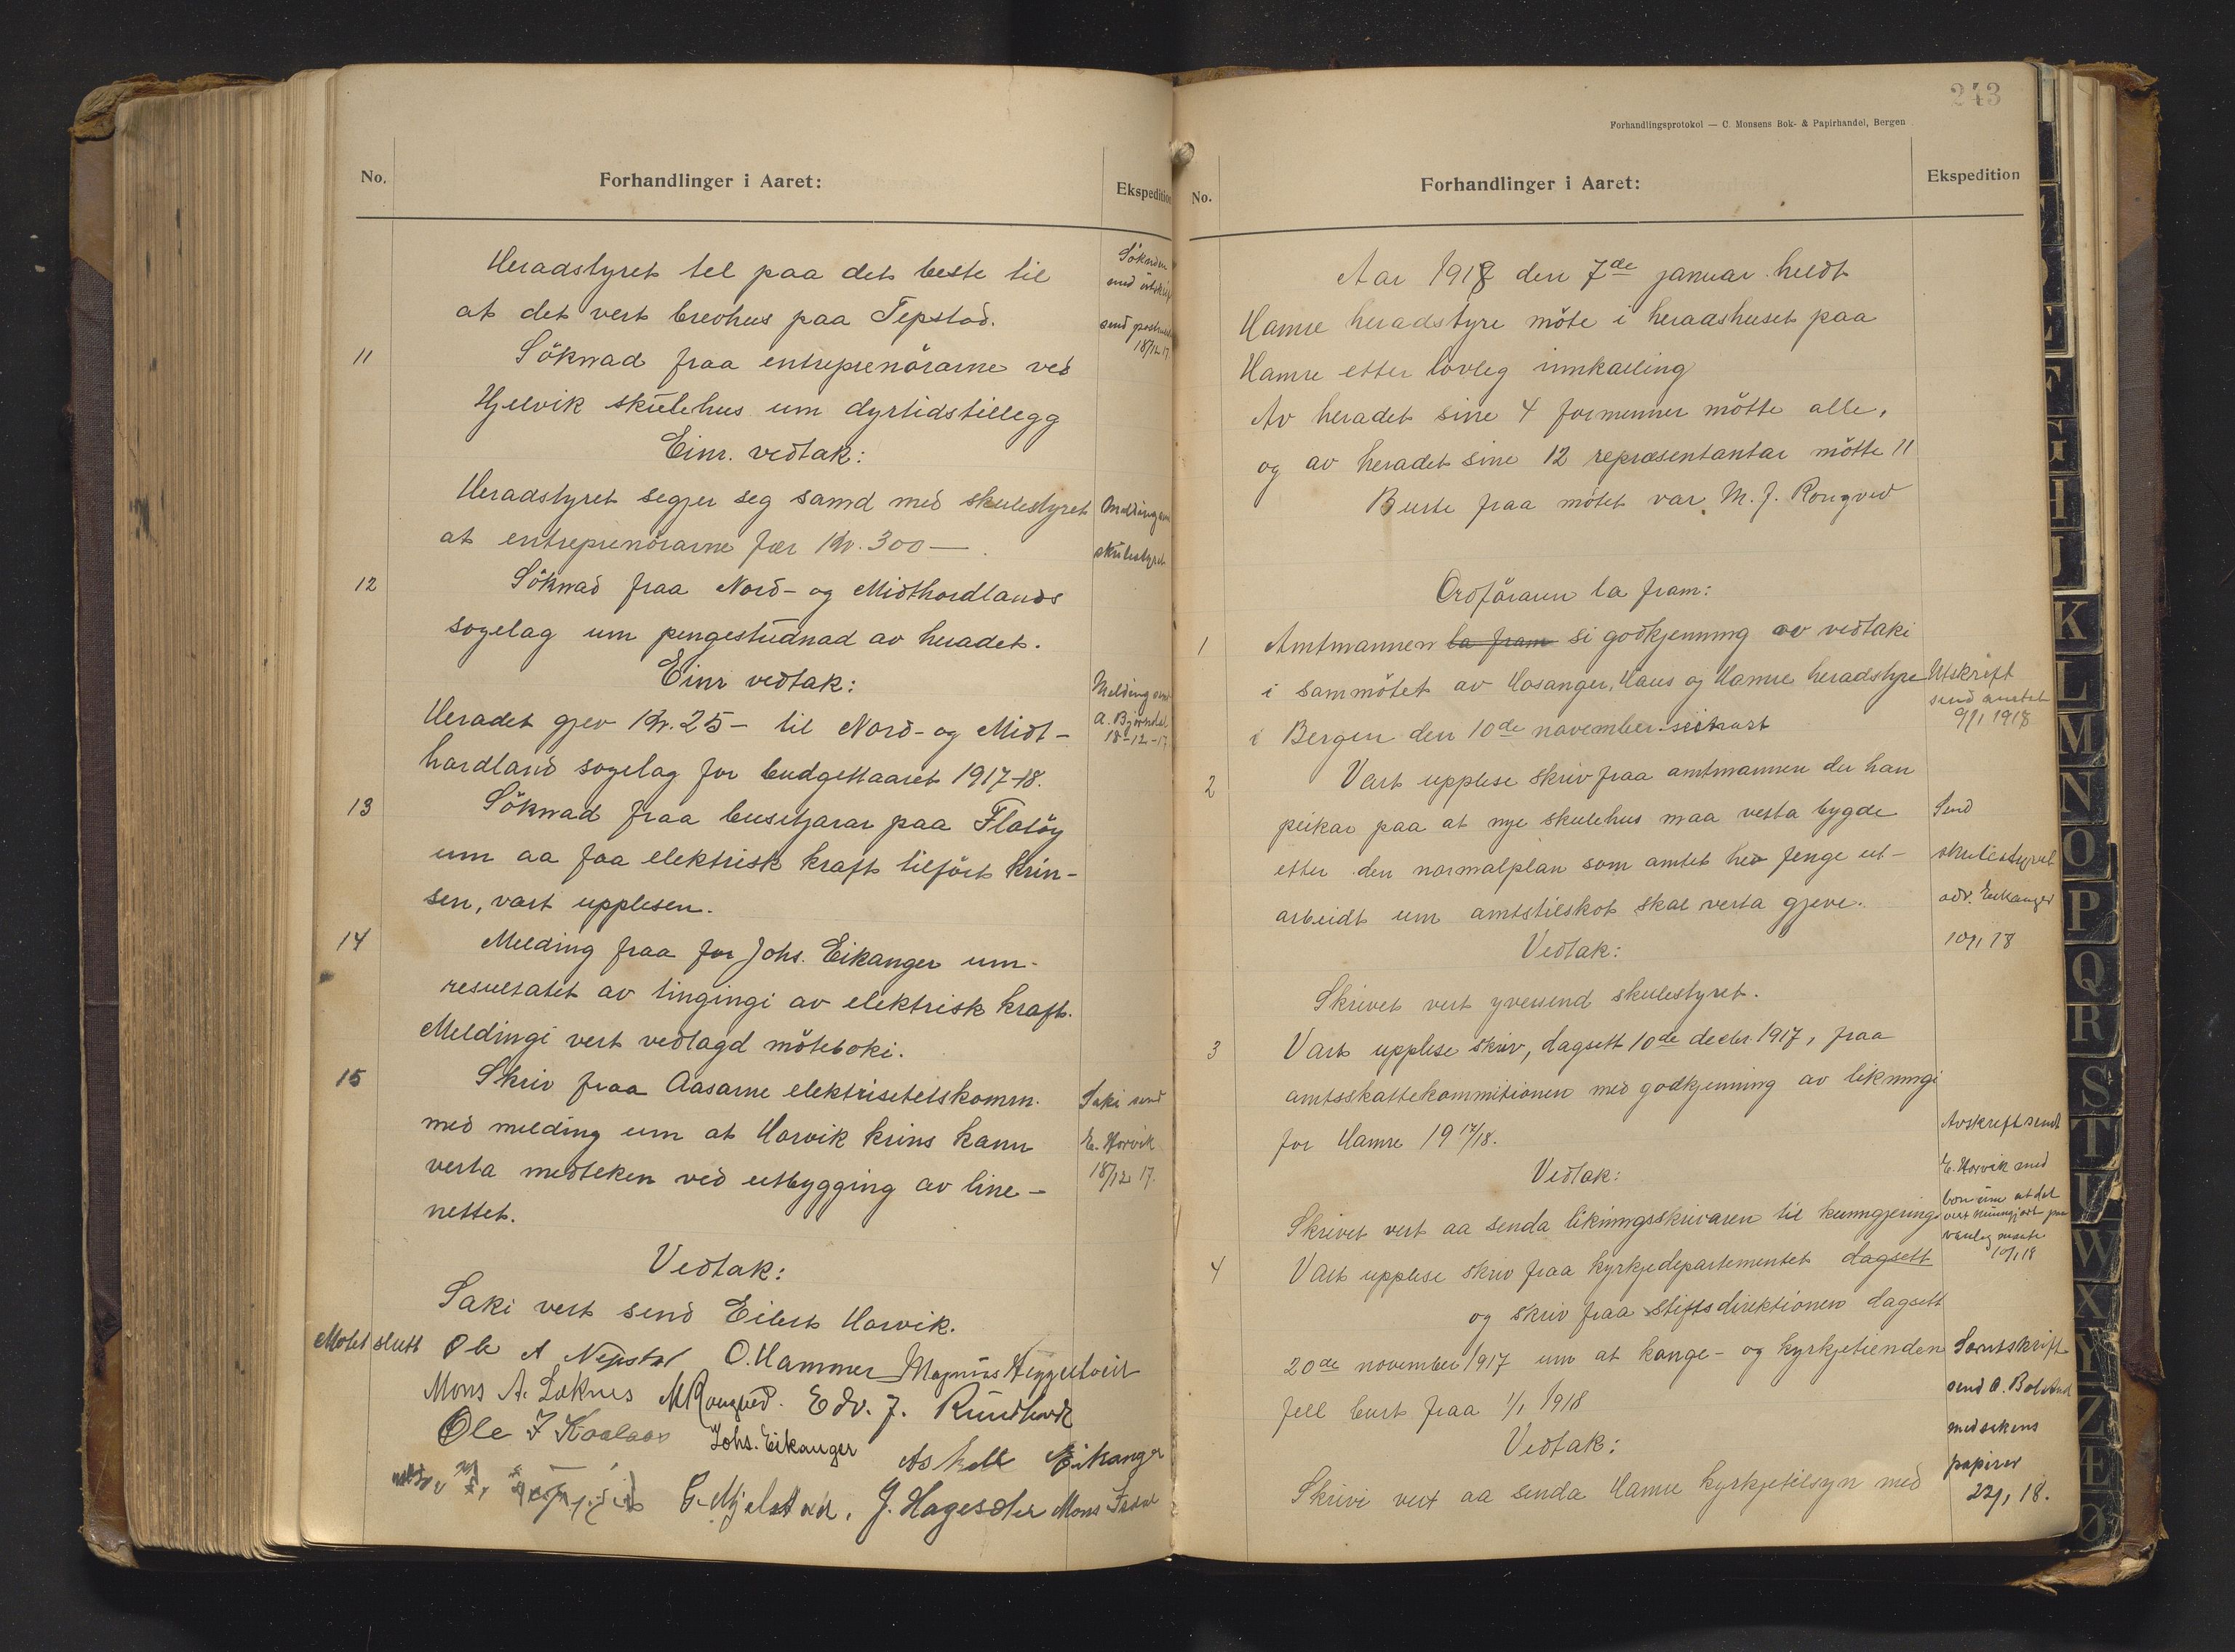 No.
Forhandlinger i Aaret:
Ekspedition
Heradstyret tel paa det beste til
at det vert brevhus paa Tepstad.
Søknaden
send
18/12 17
11
Söknad fraa entreprenörarne ved
Hjelvik skulehus um dyrtidstillegg
Einr. vedtak:
Heradstyret segjer seg samd med skulestyret
at entreprenörarne fær Kr. 300 — .
Melding
skulestyret
12
Söknad fraa Nord- og Midthordlands
sogelag um pengestudnad av heradet.
Einr vedtak:
Heradet gjev Kr. 25 - til Nord- og Midt-
hordland sogelag for budgettaaret 1917-18.
Melding send
A. Bjørndal
18-12-17
13
Söknad fraa busitjarar paa Flatöy
um aa faa elektrisk kraft tilfört krin-
sen, vart upplesen.
14
Melding fraa for Johs. Eikanger um
resultatet av tingingi av elektrisk kraft.
Meldingi vert vedlagd möteboki.
15
Skriv fraa Aasarne elektrisetetskomm.
med melding um at Horvik krins kann
verta medteken ved utbygging av line-
nettet.
Saki send
E. Horvik
18/12 17.
Vedtak:
Saki vert send Eilert Horvik.
Mötet slutt
Ole A Nepstad O. Hammer Magnus
Mons A. Loknes M Rongved. Edv. J.
Ole J Johs. Eikanger Askell Eikanger
J. Mons
243
Forhandlingsprotokol — C. Monsens Bok- & Papirhandel, Bergen
No.
Forhandlinger i Aaret:
Ekspedition
Aar 1918 den 7de januar heldt
Hamre heradstyre möte i heradshuset paa
Hamre etter lovleg innkalling
Av heradet sine 4 formenner mötte alle,
og av heradet sine 12 repræsentantar mötte 11
Burte fraa mötet var M. J. Rongved
Ordföraren la fram:
1
Amtmannen la fram si godkjenning av vedtaki
i sammötet av Hosanger, Haus og Hamre heradstyre
i Bergen den 10de november sistvast
Utskrift
send amtet
9/1 1918
2
Vart upplese skriv fraa amtmannen der han
peikar paa at nye skulehus maa verta bygde
etter den normalplan som amtet hev fenge ut-
arbeidt um amtstilskot skal verta gjeve.
Send
skulestyret
adr. Eikanger
10/1 18
Vedtak:
Skrivet vert yversend skulestyret.
3
Vart upplese skriv, dagsett 10de decbr. 1917, fraa
amtsskattekommitionen med godkjenning av likningi
for Hamre 19 17/18.
Vedtak:
Skrivet vert aa senda likningsskrivaren til kunngjering
Avskrift sendt
E. Horvik med
bön um at det
vert kunngjort paa
vanleg maate
10/1 18
4
Vart upplese skriv fraa kyrkjedepartementet dagsett
og skriv fraa stiftsdirektionen dagsett
20de november 1917 um at konge- og kyrkjetienden
fell burt fraa 1/1 1918
Vedtak:
Skrivi vert aa senda Hamre kyrkjetilsyn med
send O.
med sakens
papirer
22/1 18.
K
L
M
N
O
P
Q
R
S
T
U
W
X
Y
Z
Æ
Ø